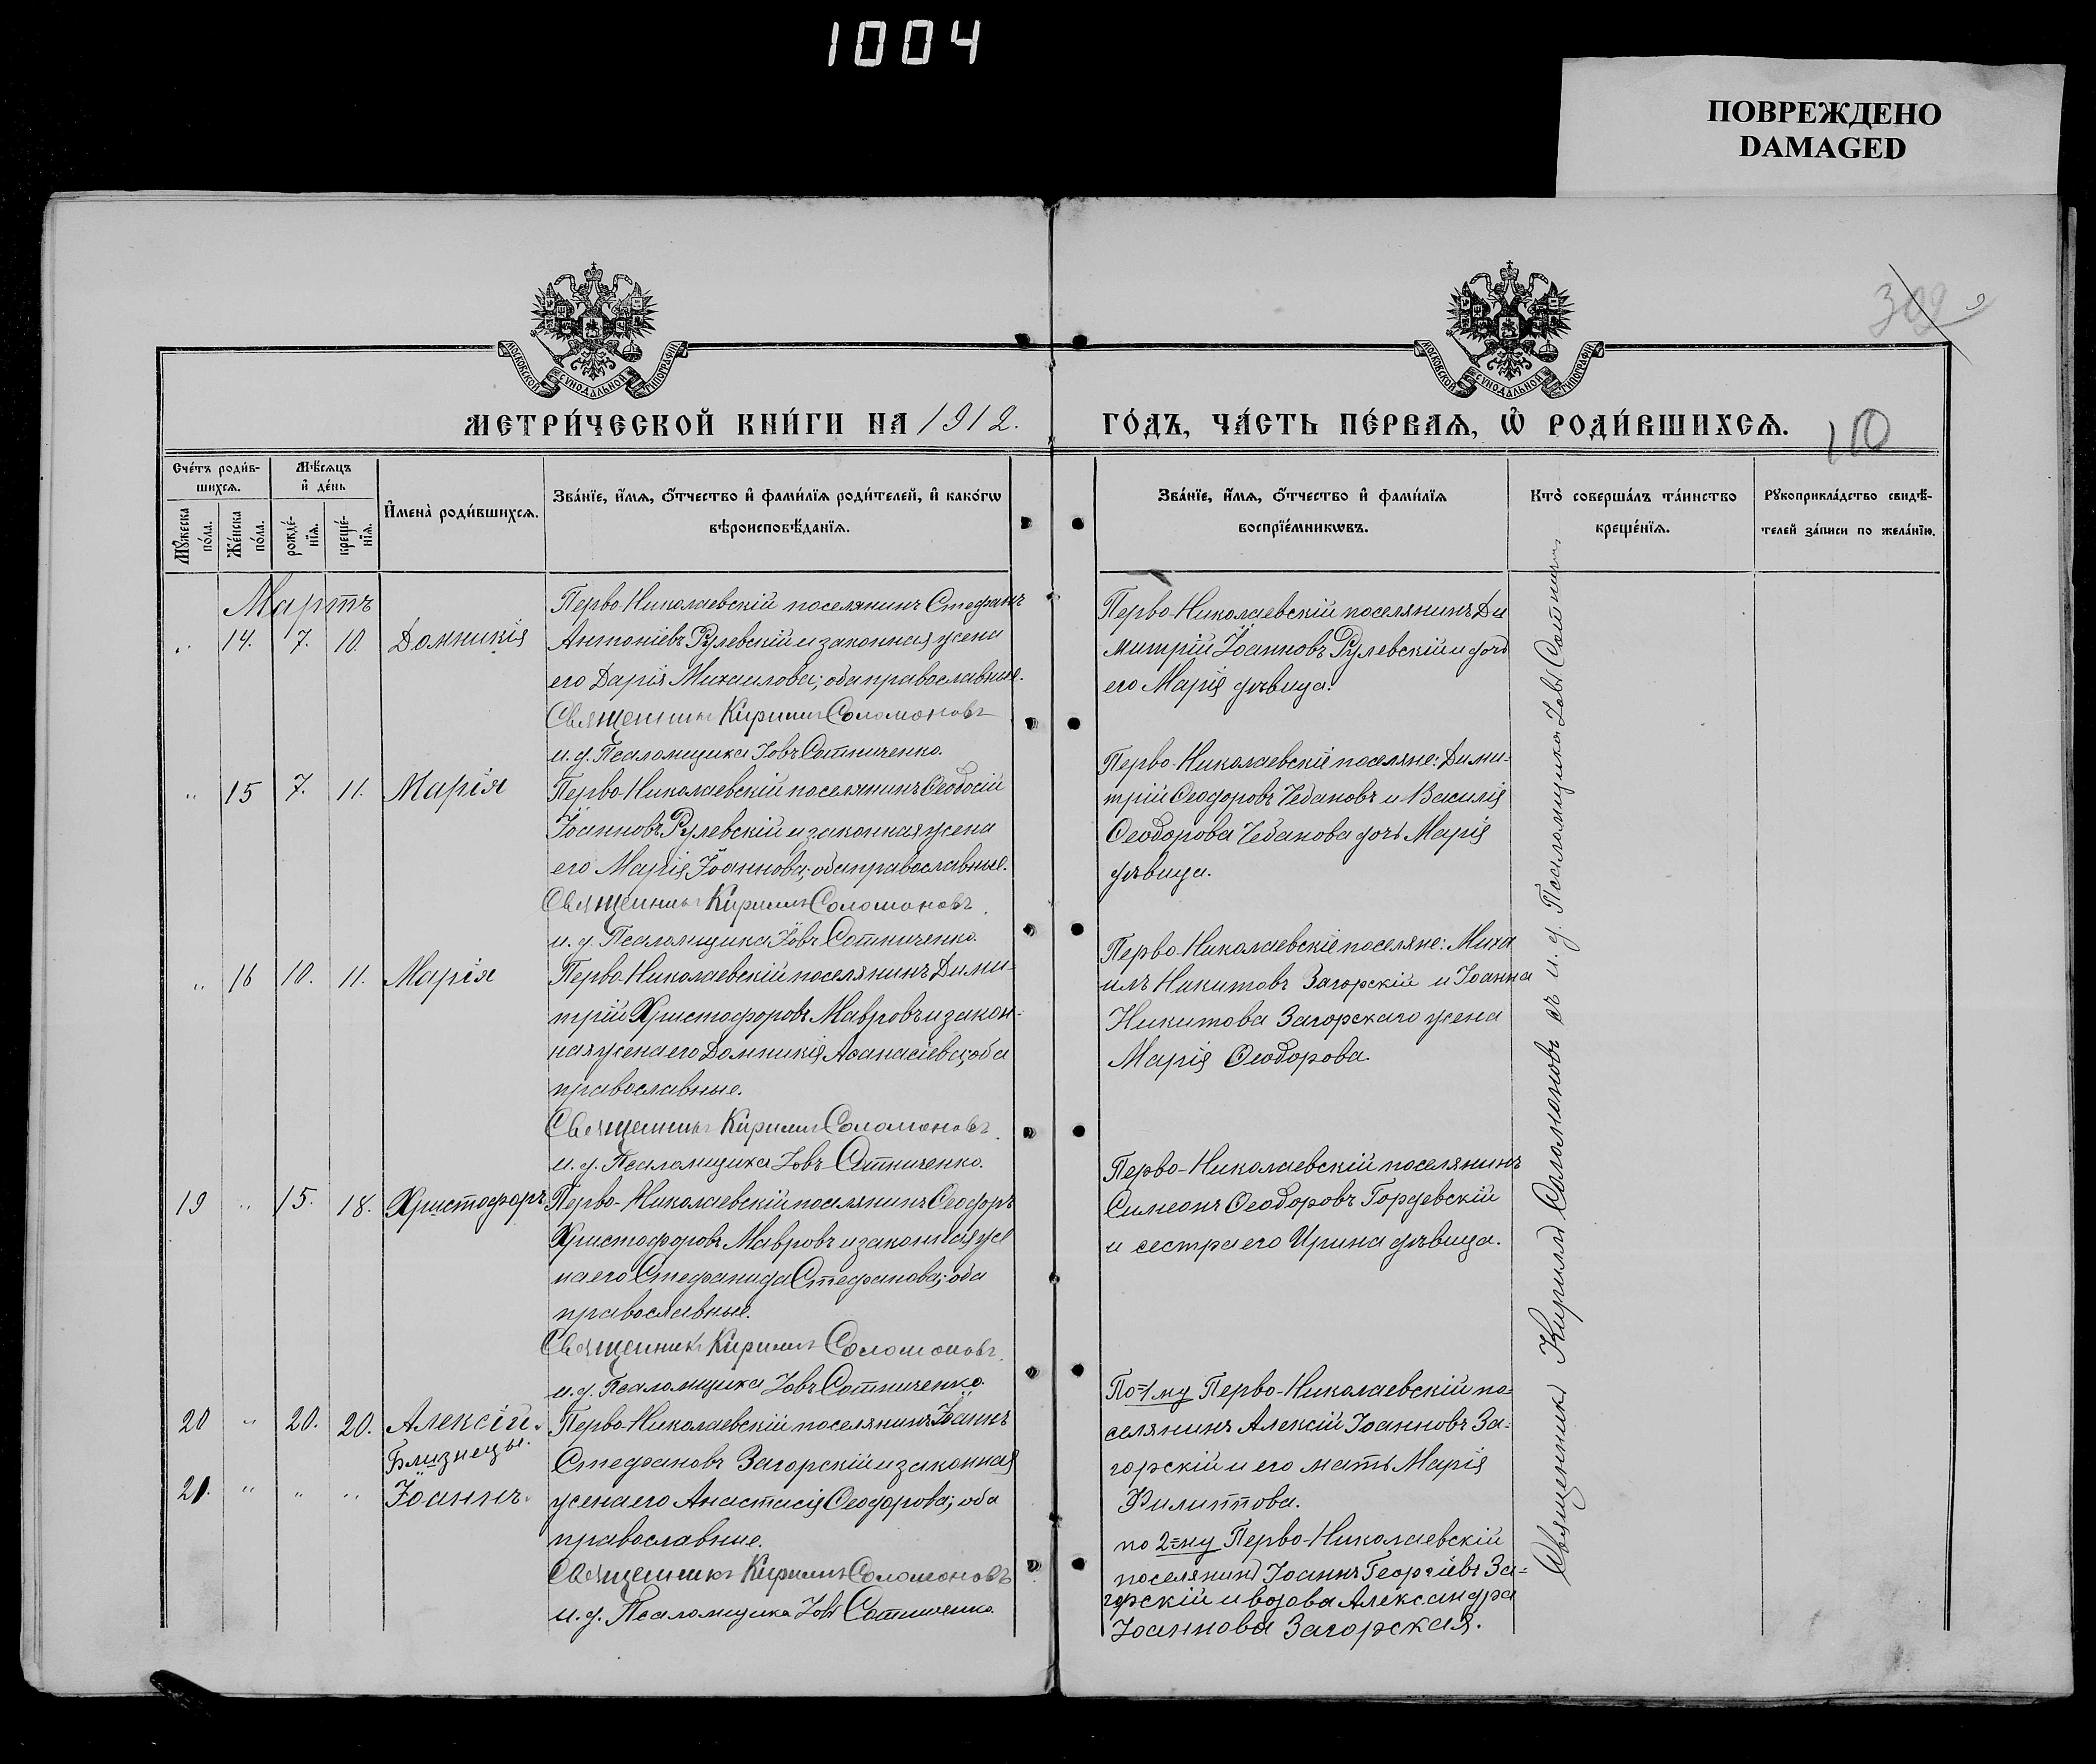 1004
ПОВРЕЖДЕНО
DAMAGED
309
МОСКОВСКОЙ СУНОДАЛЬНОЙ ТИПОГРАФІИ
МОСКОВСКОЙ СУНОДАЛЬНОЙ ТИПОГРАФІИ
МЕТРИ́ЧЕСКОЙ КНИ́ГИ НА 1912.
ГО́ДЪ, ЧА́СТЬ ПЕ́РВАѦ, Ѡ҆ РОДИ́ВШИХСѦ.
110
Сче́тъ роди́в-
шихсѧ.
Мѣ́сѧцъ
и҆ де́нь
Мꙋ́жеска
по́ла.
Же́нска
по́ла.
рожде́-
нїѧ.
креще́-
нїѧ.
И҆мена̀ роди́вшихсѧ.
Зва́нїе, и҆́мѧ, ѻ҆́тчество и҆ фами́лїѧ роди́телей, и҆ како́гѡ
вѣроисповѣ́данїѧ.
Зва́нїе, и҆́мѧ, ѻ҆́тчество и҆ фами́лїѧ
воспрїе́мникѡвъ.
Кто̀ соверша́лъ та́инство
креще́нїѧ.
Рꙋкоприкла́дство свидѣ́-
телей за́писи по жела́нїю.
Мартъ
„ 14. 7. 10. Домникія
Перво-Николаевскій поселянинъ Стефанъ
Антоніевъ Рулевскій и законная жена
его Дарія Михаилова; оба православные.
Священникъ Кириллъ Соломоновъ
и. д. Псаломщика Іовъ Сотниченко.
Перво-Николаевскій поселянинъ Ди
митрій Іоанновъ Рулевскій и дочь
его Марія дѣвица.
„ 15 7. 11. Марія
Перво-Николаевскій поселянинъ Ѳеодосій
Іоанновъ Рулевскій и законная жена
его Марія Іоаннова; оба православные.
Священникъ Кириллъ Соломоновъ
и. д. Псаломщика Іовъ Сотниченко.
Перво-Николаевскіе поселяне: Дими-
трій Ѳеодоровъ Чебановъ и Василія
Ѳеодорова Чебанова дочь Марія
дѣвица.
„ 16 10. 11. Марія
Перво-Николаевскій поселянинъ Дими-
трій Христофоровъ Мавровъ и закон-
ная жена его Домникія Аѳанасіева; оба
православные.
Священникъ Кириллъ Соломоновъ
и. д. Псаломщика Іовъ Сотниченко.
Перво-Николаевскіе поселяне: Миха
илъ Никитовъ Загорскій и Іоанна
Никитова Загорскаго жена
Марія Ѳеодорова.
19 „ 15. 18. Христофоръ
Перво-Николаевскій поселянинъ Ѳеодоръ
Христофоровъ Мавровъ и законная же
на его Стефанида Стефанова; оба
православные.
Священникъ Кириллъ Соломоновъ
и. д. Псаломщика Іовъ Сотниченко
Перво-Николаевскій поселянинъ
Симеонъ Ѳеодоровъ Гордевскій
и сестра его Ирина дѣвица.
20 „ 20. 20. Алексій.
Близнецы.
21. „ „ „ Іоаннъ.
Перво-Николаевскій поселянинъ Іоаннъ
Стефановъ Загорскій и законная
жена его Анастасія Ѳеодорова; оба
православные.
Священникъ Кириллъ Соломоновъ
и. д. Псаломщика Іовъ Сотниченко.
По-1му Перво-Николаевскій по-
селянинъ Алексій Іоанновъ За-
горскій и его мать Марія
Филиппова.
по 2-му Перво-Николаевскій
поселянинъ Іоаннъ Георгіевъ За-
горскій и вдова Александра
Іоаннова Загорская.
Священникъ Кириллъ Соломоновъ съ и. д. Псаломщика Іовъ Сотнич.